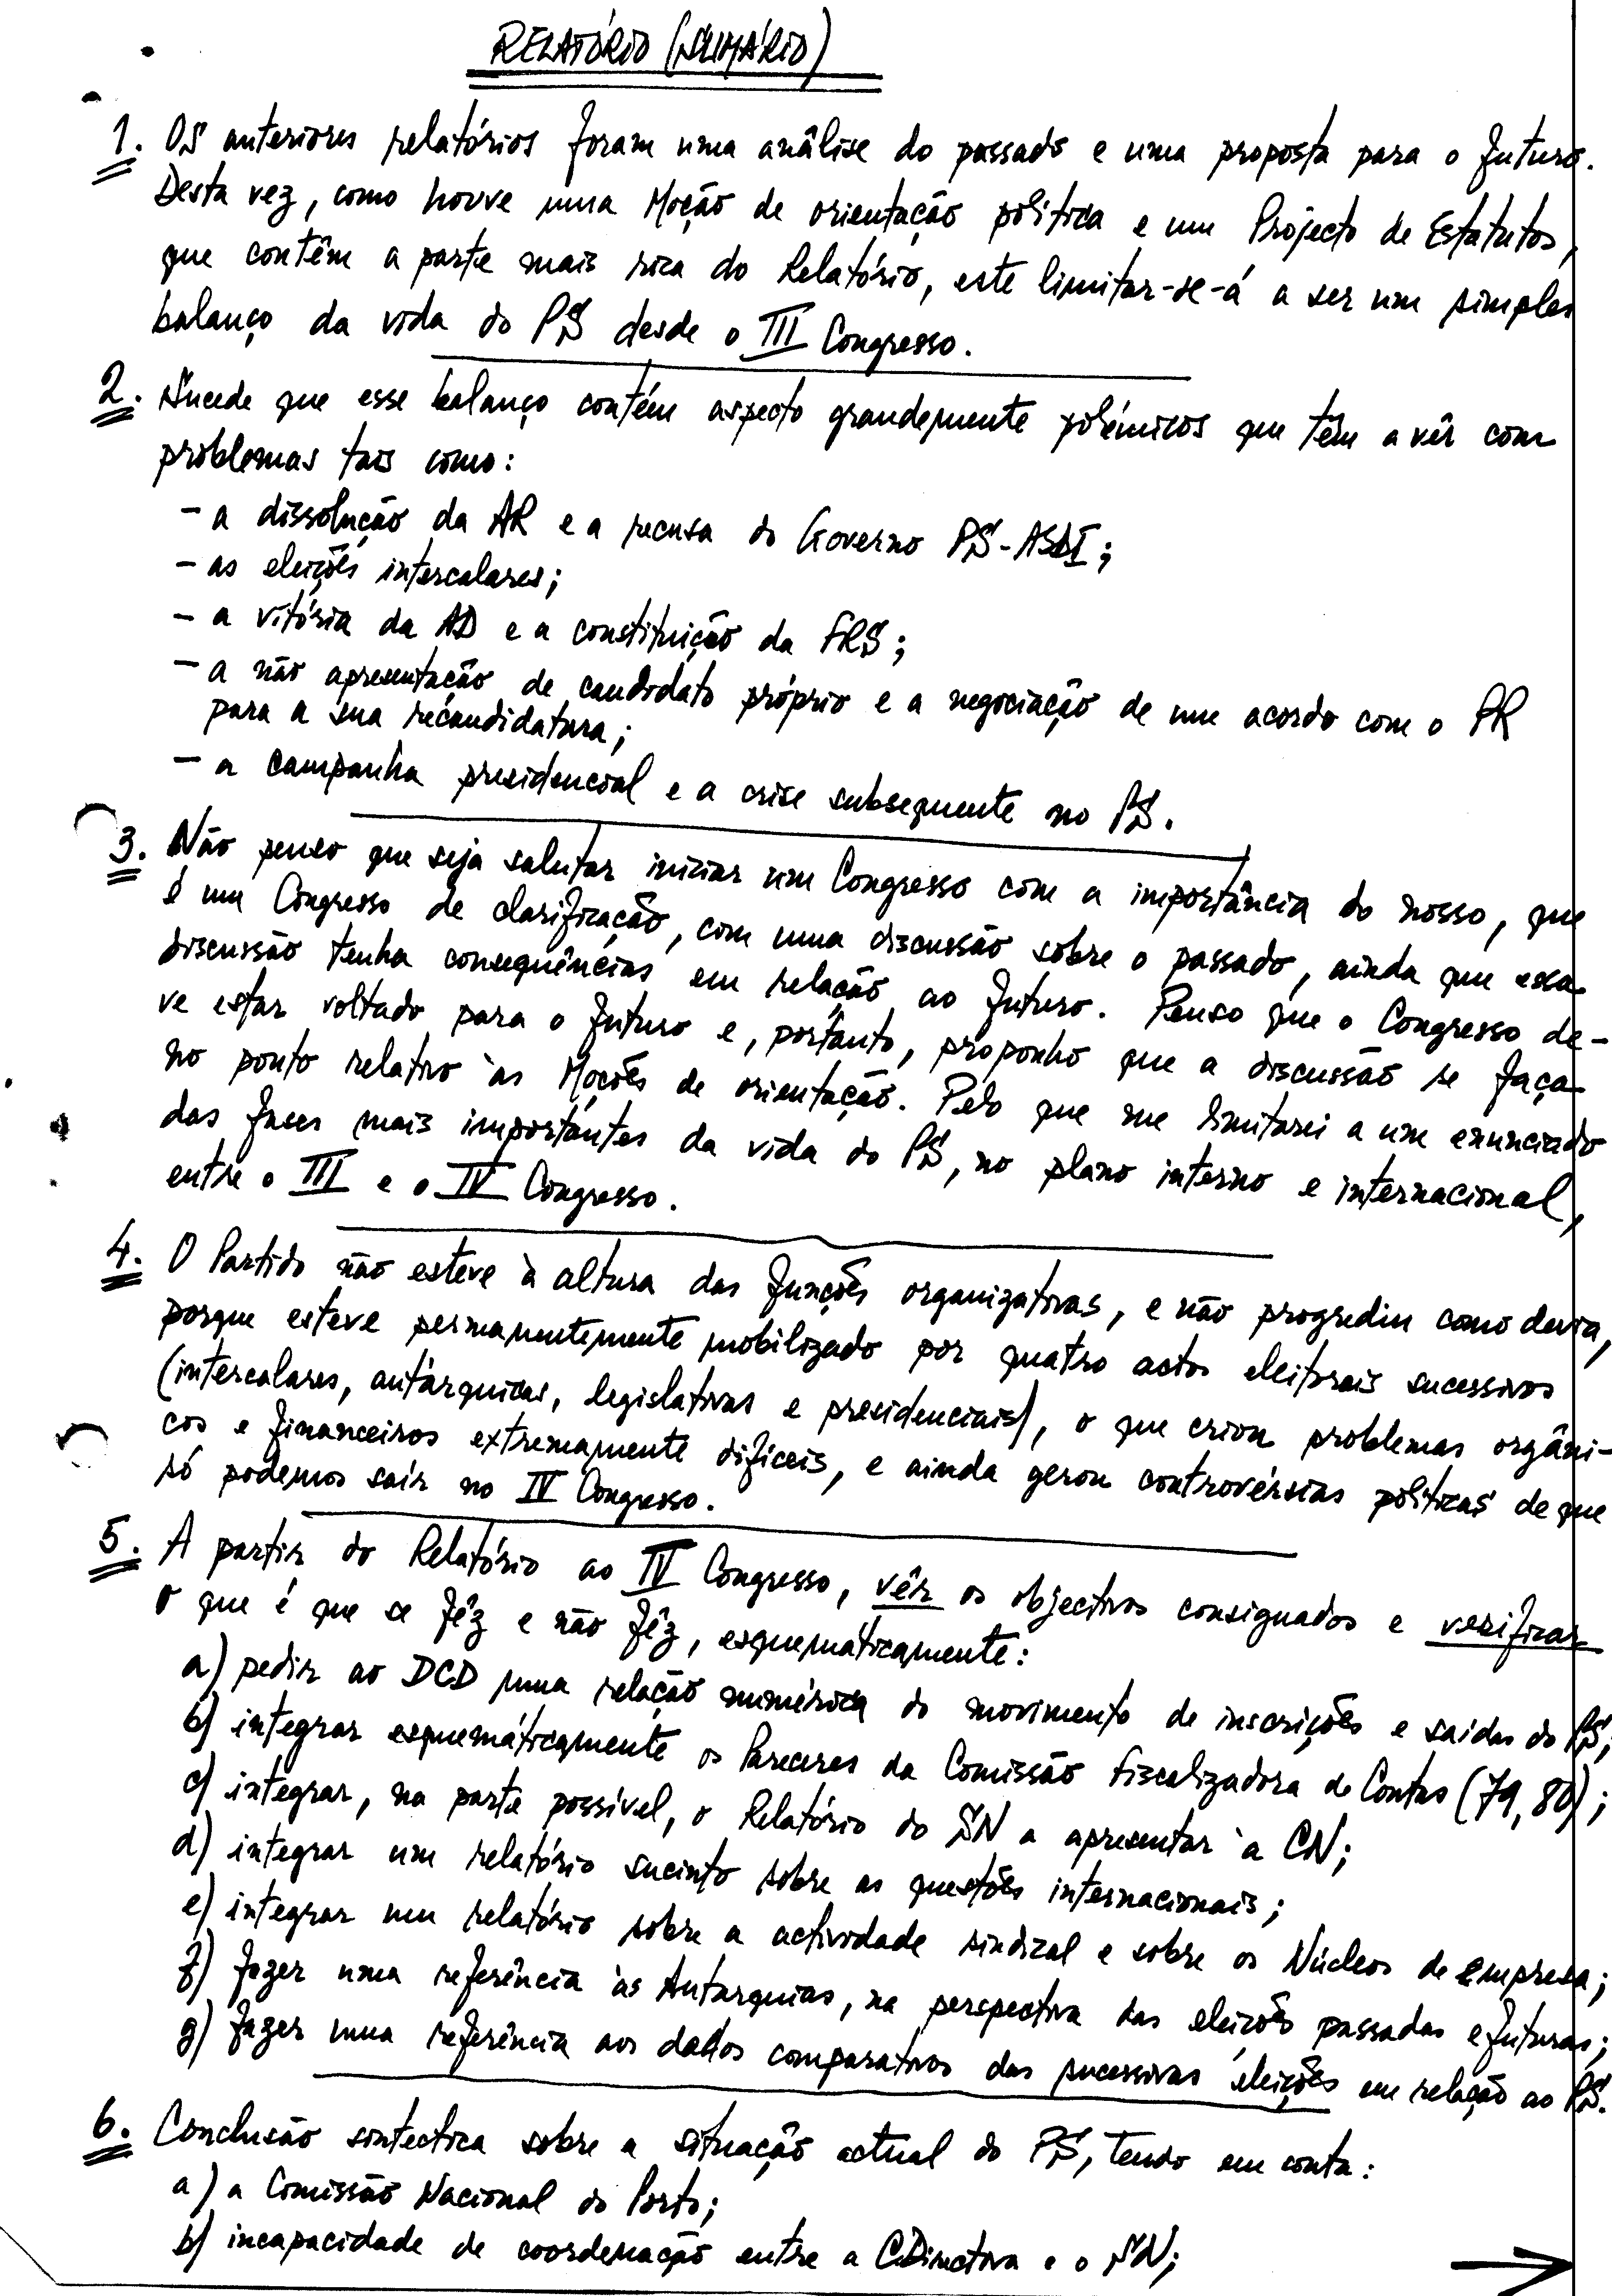 RELATÓRIO (SUMÁRIO)
1. OS anteriores relatórios foram uma análise do passado e uma proposta para o futuro.
Desta vez, como houve uma Moção de orientação política e um Projecto de Estatutos,
que contêm a parte mais rica do Relatório, este limitar-se-á a ser um simples
balanço da vida do PS desde o III Congresso.
2. Sucede que esse balanço contém aspecto grandemente polémicos que têm a vêr com
problemas tais como:
- a dissolução da AR e a recusa do Governo PS-ASDI;
- as eleições intercalares;
- a vitória da AD e a constituição da FRS;
- a não apresentação de candidato próprio e a negociação de um acordo com o PR
para a sua recandidatura;
- a campanha presidencial e a crise subsequente no PS.
3. Não penso que seja salutar iniciar um Congresso com a importância do nosso, que
é um Congresso de clarificação, com uma discussão sobre o passado, ainda que essa
discussão tenha consequências em relação ao futuro. Penso que o Congresso de-
ve estar voltado para o futuro e, portanto, proponho que a discussão se faça
no ponto relativo às Moções de orientação. Pelo que me limitarei a um enunciado
das fases mais importantes da vida do PS, no plano interno e internacional,
entre o III e o IV Congresso.
4. O Partido não esteve à altura das funções organizativas, e não progrediu como devia,
porque esteve permanentemente mobilizado por quatro actos eleitorais sucessivos
(intercalares, autárquicas, legislativas e presidenciais), o que criou problemas orgâni-
cos e financeiros extremamente difíceis, e ainda gerou controvérsias políticas de que
só podemos saír no IV Congresso.
5. A partir do Relatório ao IV Congresso, vêr os objectivos consignados e verificar
o que é que se fêz e não fêz, esquemáticamente:
a) pedir ao DCD uma relação numérica do movimento de inscrições e saídas do PS;
b) integrar esquemáticamente os Pareceres da Comissão Fiscalizadora de Contas (79, 80);
c) integrar, na parte possível, o Relatório do SN a apresentar à CN;
d) integrar um relatório sucinto sobre as questões internacionais;
e) integrar um relatório sobre a actividade sindical e sobre os Núcleos de Empresa;
f) fazer uma referência às Autarquias, na perspectiva das eleições passadas e futuras;
g) fazer uma referência aos dados comparativos das sucessivas eleições em relação ao PS.
6. Conclusão sintectica sobre a situação actual do PS, tendo em conta:
a) a Comissão Nacional do Porto;
b) incapacidade de coordenação entre a CDirectiva e o SN;